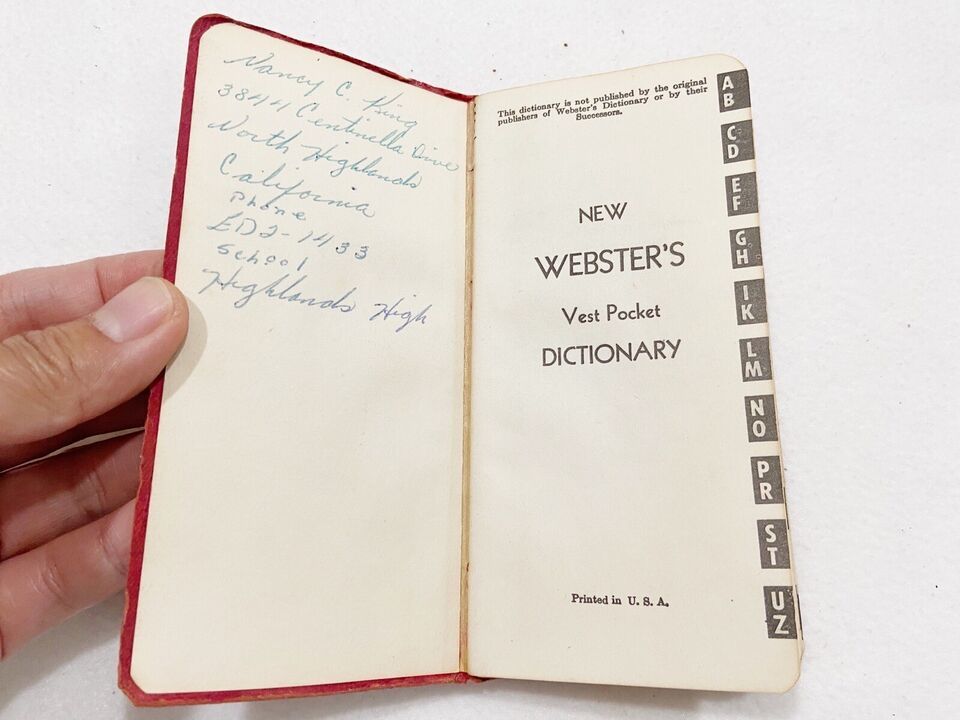 Nancy C. King
3844 Centinella Drive
North Highlands
California
Phone
ED2-1433
School
Highlands High
This dictionary is not published by the original
publishers of Webster's Dictionary or by their
Successors.
NEW
WEBSTER'S
Vest Pocket
DICTIONARY
Printed in U. S. A.
A
B
C
D
E
F
G
H
I
K
L
M
N
O
P
R
S
T
U
Z